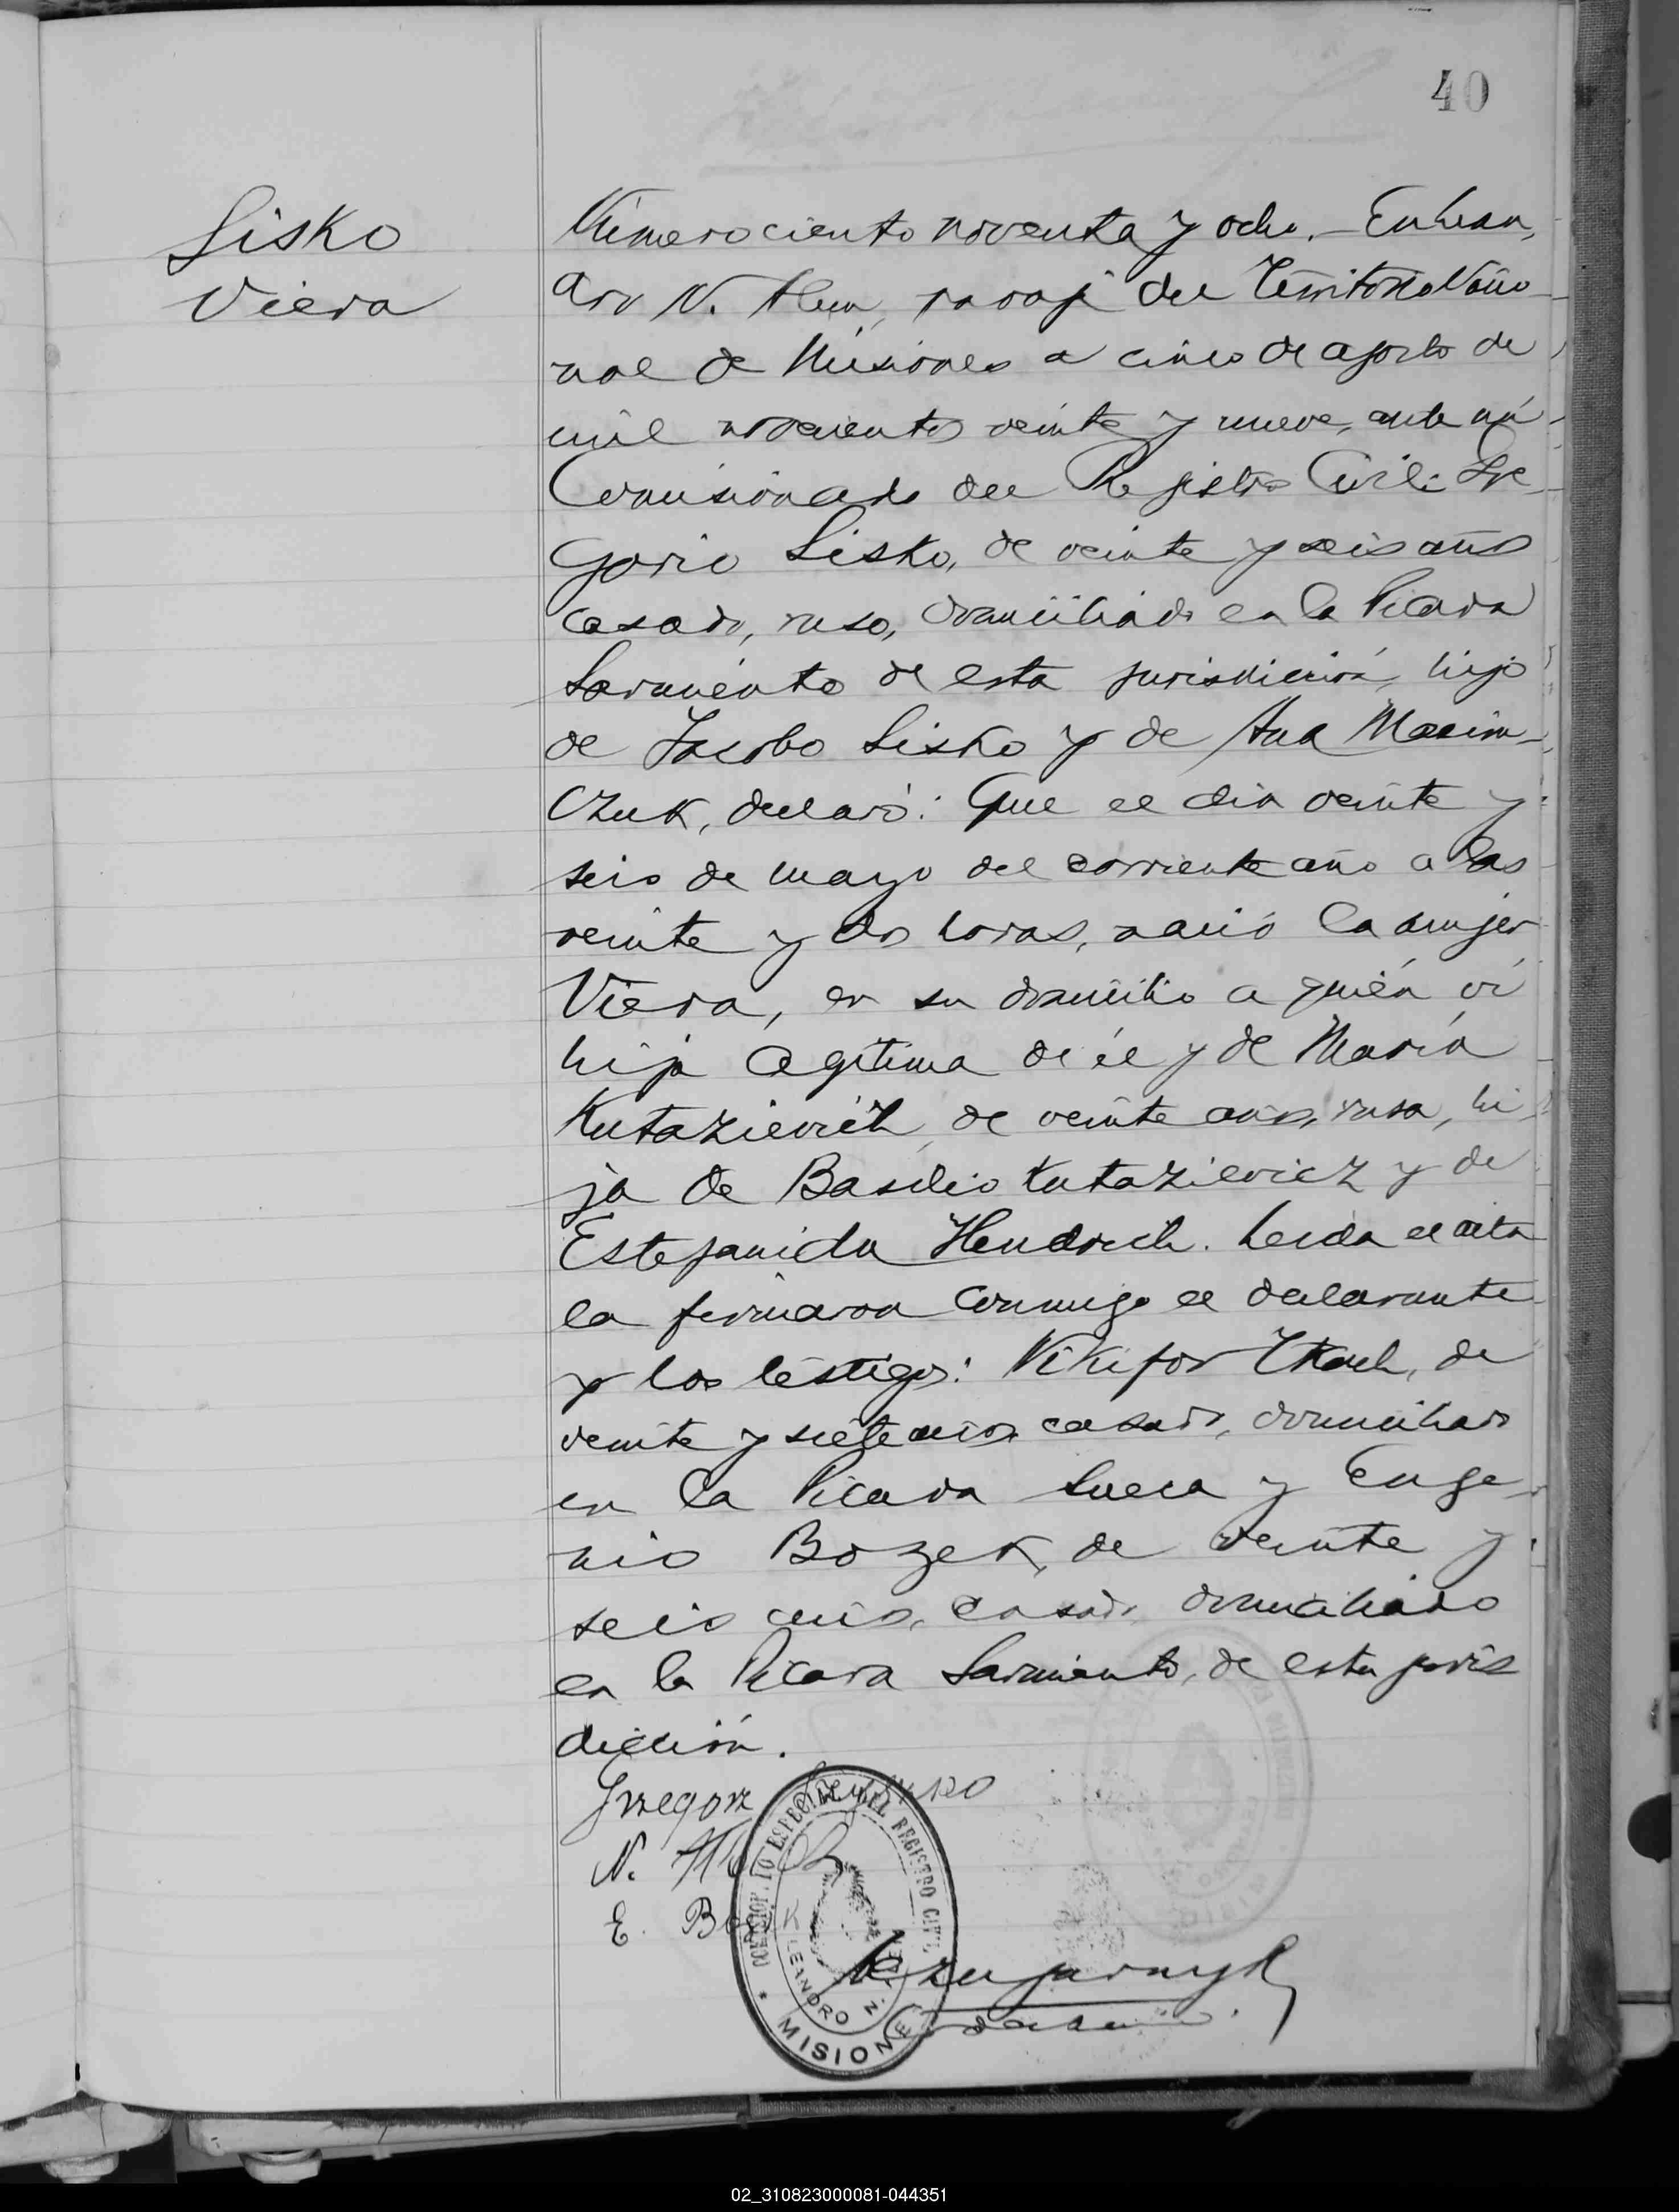 40
Lisko
Viera
Número ciento noventa y ocho.- En Lean,
dro N. Alem, paraje del Territorio Nacio-
nal de Misiones a cinco de agosto de
mil novecientos veinte y nueve, ante mí
Comisionado del Registro Civil: Gre-
gorio Lisko, de veinte y seis años
casado, ruso, domiciliado en la Picada
Sarmiento de esta jurisdicción, hijo
de Jacobo Lisko y de Ana Maxim-
czuk, declaró: Que el día veinte y
seis de mayo del corriente año a las
veinte y dos horas, nació la mujer
Viera, en su domicilio a quién ví
hija legítima de él y de María
Kutazievich, de veinte años, rusa, hi
ja de Basilio Kutazievicz y de
Estefanida Hendrich. Leida el acta
la firmaron conmigo el declarante
y los testigos: Nikifor Tkach, de
veinte y siete años casado, domiciliado
en la Picada Sueca y Euge-
nio Bozek, de veinte y
seis años, casado, domiciliado
en la Picada Sarmiento, de esta juris
dicción.
Grzegorz
N.
E. Bozek
COMISIONADO ESPECIAL DEL REGISTRO CIVIL
LEANDRO N. ALEM
* MISIONES
02_310823000081-044351